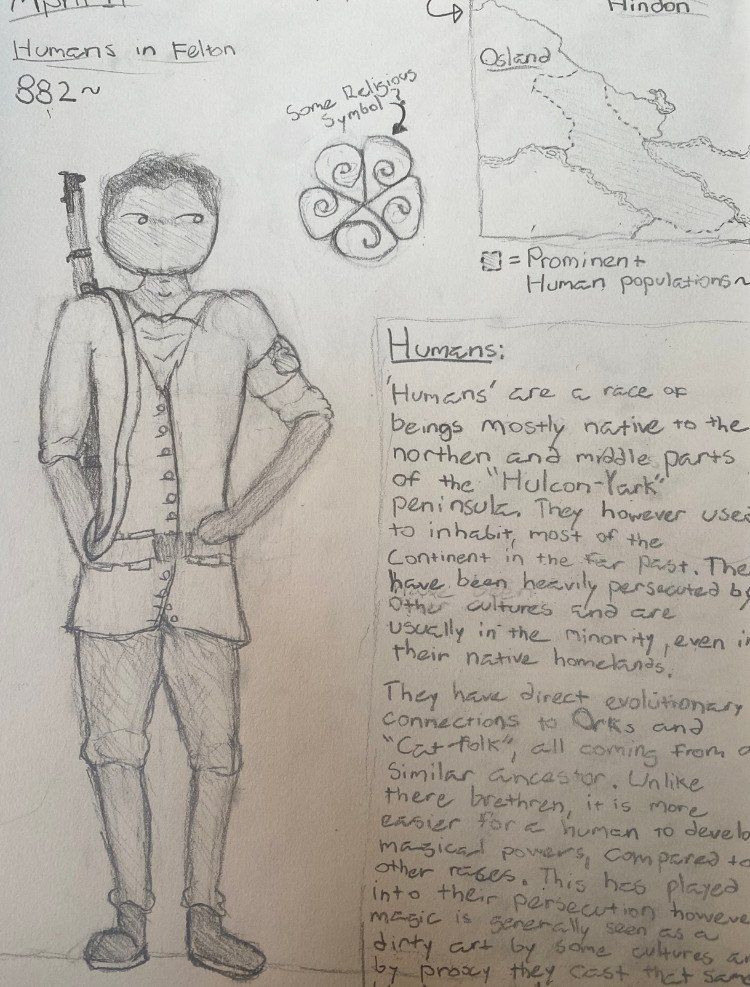 April 11
Humans in Felton
882~
Some Religious
Symbol?
Hindon
Osland
= Prominent
Human populations~
Humans:
'Humans' are a race of
beings mostly native to the
northen and middle parts
of the "Hulcon-Yark"
peninsula. They however used
to inhabit most of the
continent in the far past. The
have been heavily persecuted by
other cultures and are
usually in the minority, even in
their native homelands.
They have direct evolutionary
connections to Orks and
"Cat-folk", all coming from a
similar ancestor. Unlike
there brethren, it is more
easier for a human to develo
magical powers, compared to
other races. This has played
into their persecution howeve
magic is generally seen as a
dirty art by some cultures an
by proxy they cast that sam